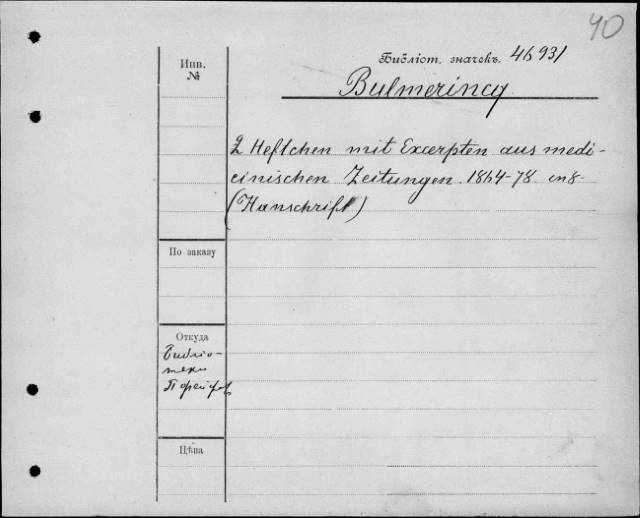 40
Инв. №
Библіот. значекъ. 46931
Bulmerincq
2 Heftchen mit Excerpten aus medi-
cinischen Zeitungen 1864-78. in 8.
(Hanschrift)
По заказу
Откуда
Библіо-
теки
Цѣна